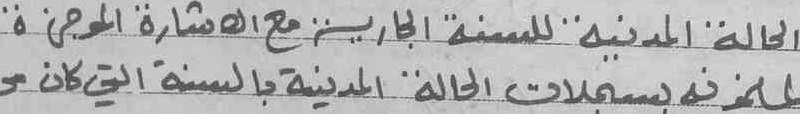 الحالة المدنية للسنة الجارية مع الاشارة الموجزة
بسجلات الحالة المدنية بالسنة التي كان